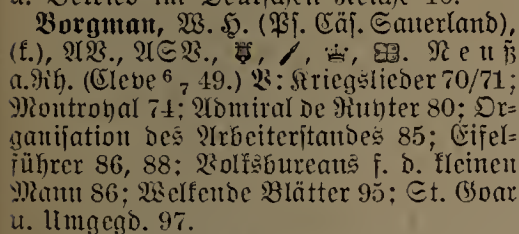 a. Betrieb im Deutschen Reiche 10.
Borgman, W. H. (Ps. Cäs. Sauerland),
(k.), AV., ASV., Neuß
a.Rh. (Cleve 6 7 49.) V: Kriegslieder 70/71;
Montroyal 74; Admiral de Ruyter 80; Or=
ganisation des Arbeiterstandes 85; Eifel=
führer 86, 88; Volksbureaus f. d. kleinen
Mann 86; Welkende Blätter 95; St. Goar
u. Umgegd. 97.